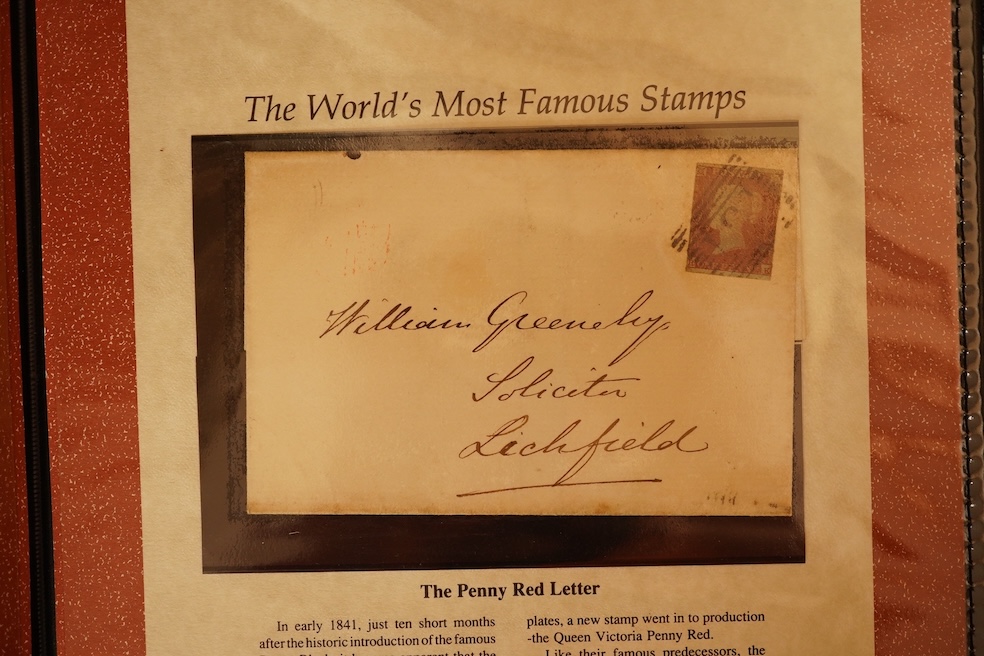 The World's Most Famous Stamps
William Greensby,
Solicitor
Lichfield
The Penny Red Letter
In early 1841, just ten short months
after the historic introduction of the famous
plates, a new stamp went in to production
-the Queen Victoria Penny Red.
Like their famous predecessors, the